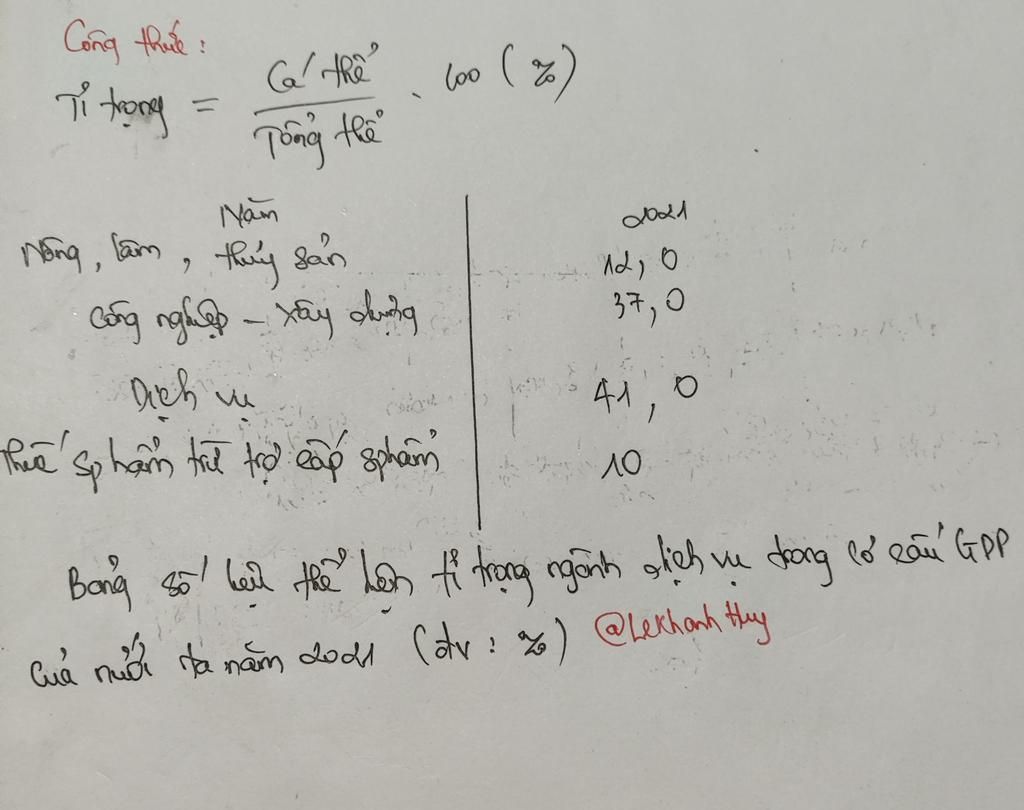 Công thức :
Tỉ trọng = Cá thể / Tổng thể . 100 ( % )
Năm 2021
Nông, lâm, thủy sản 12, 0
Công nghiệp - xây dựng 37, 0
Dịch vụ 41, 0
Thuế sphẩm trừ trợ cấp sphẩm 10
Bảng số liệu thể hiện tỉ trọng ngành dịch vụ trong cơ cấu GDP
của nước ta năm 2021 (đv : %) @LeKhanhHuy